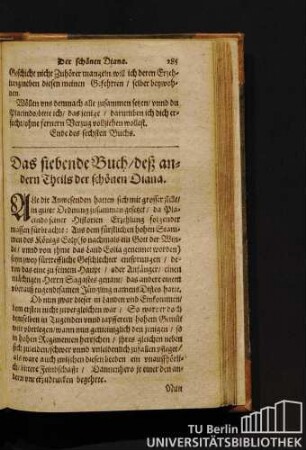 Der schönen Diana. 285
Geschicht nicht Zuhörer mangeln will ich deren Erzeh-
lung neben diesen meinen Gefehrten / selber beywoh-
nen.
Wöllen uns demnach alle zusammen setzen / vnnd du
Placindo, wie ich / das jenige / darumben ich dich er-
sucht / ohne fernern Verzug vollziehen wöllest.
Ende des sechsten Buchs.
Das siebende Buch / deß an-
dern Theils der schönen Diana.
Alle die Anwesenden hatten sich mit grosser
in gute Ordnung zusammen gesetzt / da Pla-
cindo seiner Historien Erzehlung folgender
massen fürbracht: Aus dem fürstlichen hohen Stam-
men des Königs (so nachmals ein Gott der Win-
de / vnd von ihme das Land Eolia genennet worden)
seyn zwey fürtreffliche Geschlechter entsprungen / de-
ren das eine zu seinem Haupt / oder Anfänger / einen
mächtigen Herrn Sagastes genant / das ander einen
viel tugendsamen Jüngling namens Disteo hatte.
Ob nun zwar dieser in Landen vnd Einkommen /
dem ersten nicht zuvergleichen war / So
denselben in Tugenden vnd tapfferem hohem Gemüt
weit vberlegen / wann nun gemeiniglich den jenigen / so
in hohen Regimenten herrschen / ihres gleichen neben
sich zuleiden / schwer vnnd vnleidenlich zufallen pfleget /
ware auch zwischen diesen beiden ein vnauffhörli-
che / innere Feindschafft / Dannenhero je einer den an-
dern vnterzudrucken begehrte.
Nun
TU Berlin
UNIVERSITÄTSBIBLIOTHEK